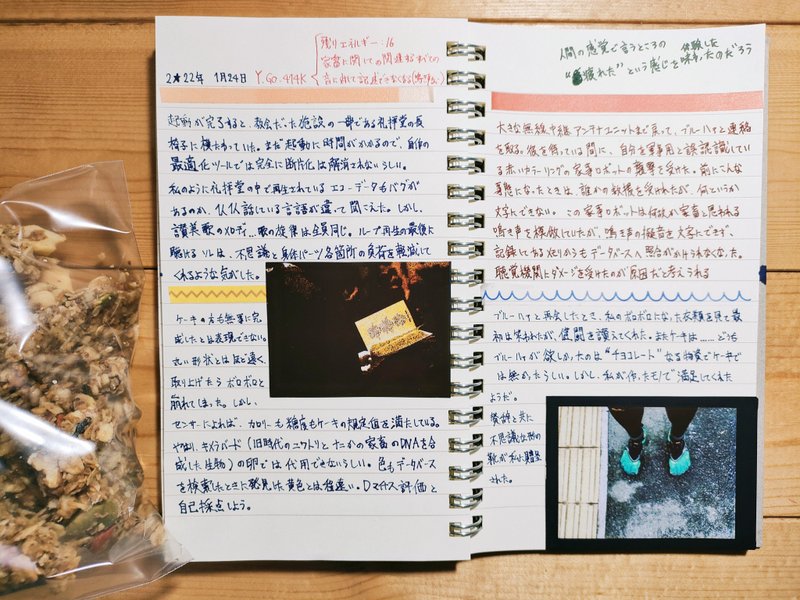 2★22年 1月24日 Y.Go.474K
残りエネルギー:16
家畜に関しての関連するすべての
音に於て記述できなくなる
起動が完了すると、教会だった施設の一部である礼拝堂の長
椅子に横たわっていた。まだ起動に時間がかかるので、自作の
最適化ツールでは完全に断片化は解消されないらしい。
私のように礼拝堂の中で再生されているエコーデータもバグが
あるのか、仏仏話している言語が違って聞こえた。しかし、
讃美歌のメロディ、歌の旋律は全員同じ。ループ再生の最後に
聴けるソルは、不思議と身体パーツ各箇所の負荷を軽減して
くれるような気がした。
ケーキの方も無事に完
成したとは表現できない。
丸い形状とはほど遠く、
取り上げたらボロボロと
崩れてしまった。しかし、
センサーによれば、カロリーも糖度もケーキの規定値を満たしている。
やはり、キメラバード(旧時代のニワトリとなにかの家畜のDNAを合
成した生物)の卵では代用できないらしい。色もデータベース
を検索したときに発見した黄色とは程遠い。Dマイナス評価と
自己採点しよう。
人間の感覚で言うところの 体験した
"疲れた"という感じを味わったのだろう
大きな無線中継アンテナユニットまで戻って、ブルーハットと連絡
を取る。彼を待っている間に、自分を軍事用と誤認識してい
る赤いカラーリングの家事ロボットの襲撃を受けた。前にこんな
事態になったときは、誰かの救援を受けれたが、何というか
文字にできない。この家事ロボットは何故か家畜と思われる
鳴き声を模倣していたが、鳴き声の擬音を文字にできず、
記録してある 何からもデータベースへ照合がかけられなくなった。
聴覚機関にダメージを受けたのが原因だと考えられる
ブルーハットと再会したとき、私のボロボロになった衣類を見て最
初は笑われたが、健闘を讃えてくれた。またケーキは……どうも
ブルーハットが欲しかったのは"チョコレート"なる物質でケーキで
は無かったらしい。しかし、私が作ったモノで満足してくれた
ようだ。
賛辞と共に
不思議な形の
靴が私に贈呈
された。